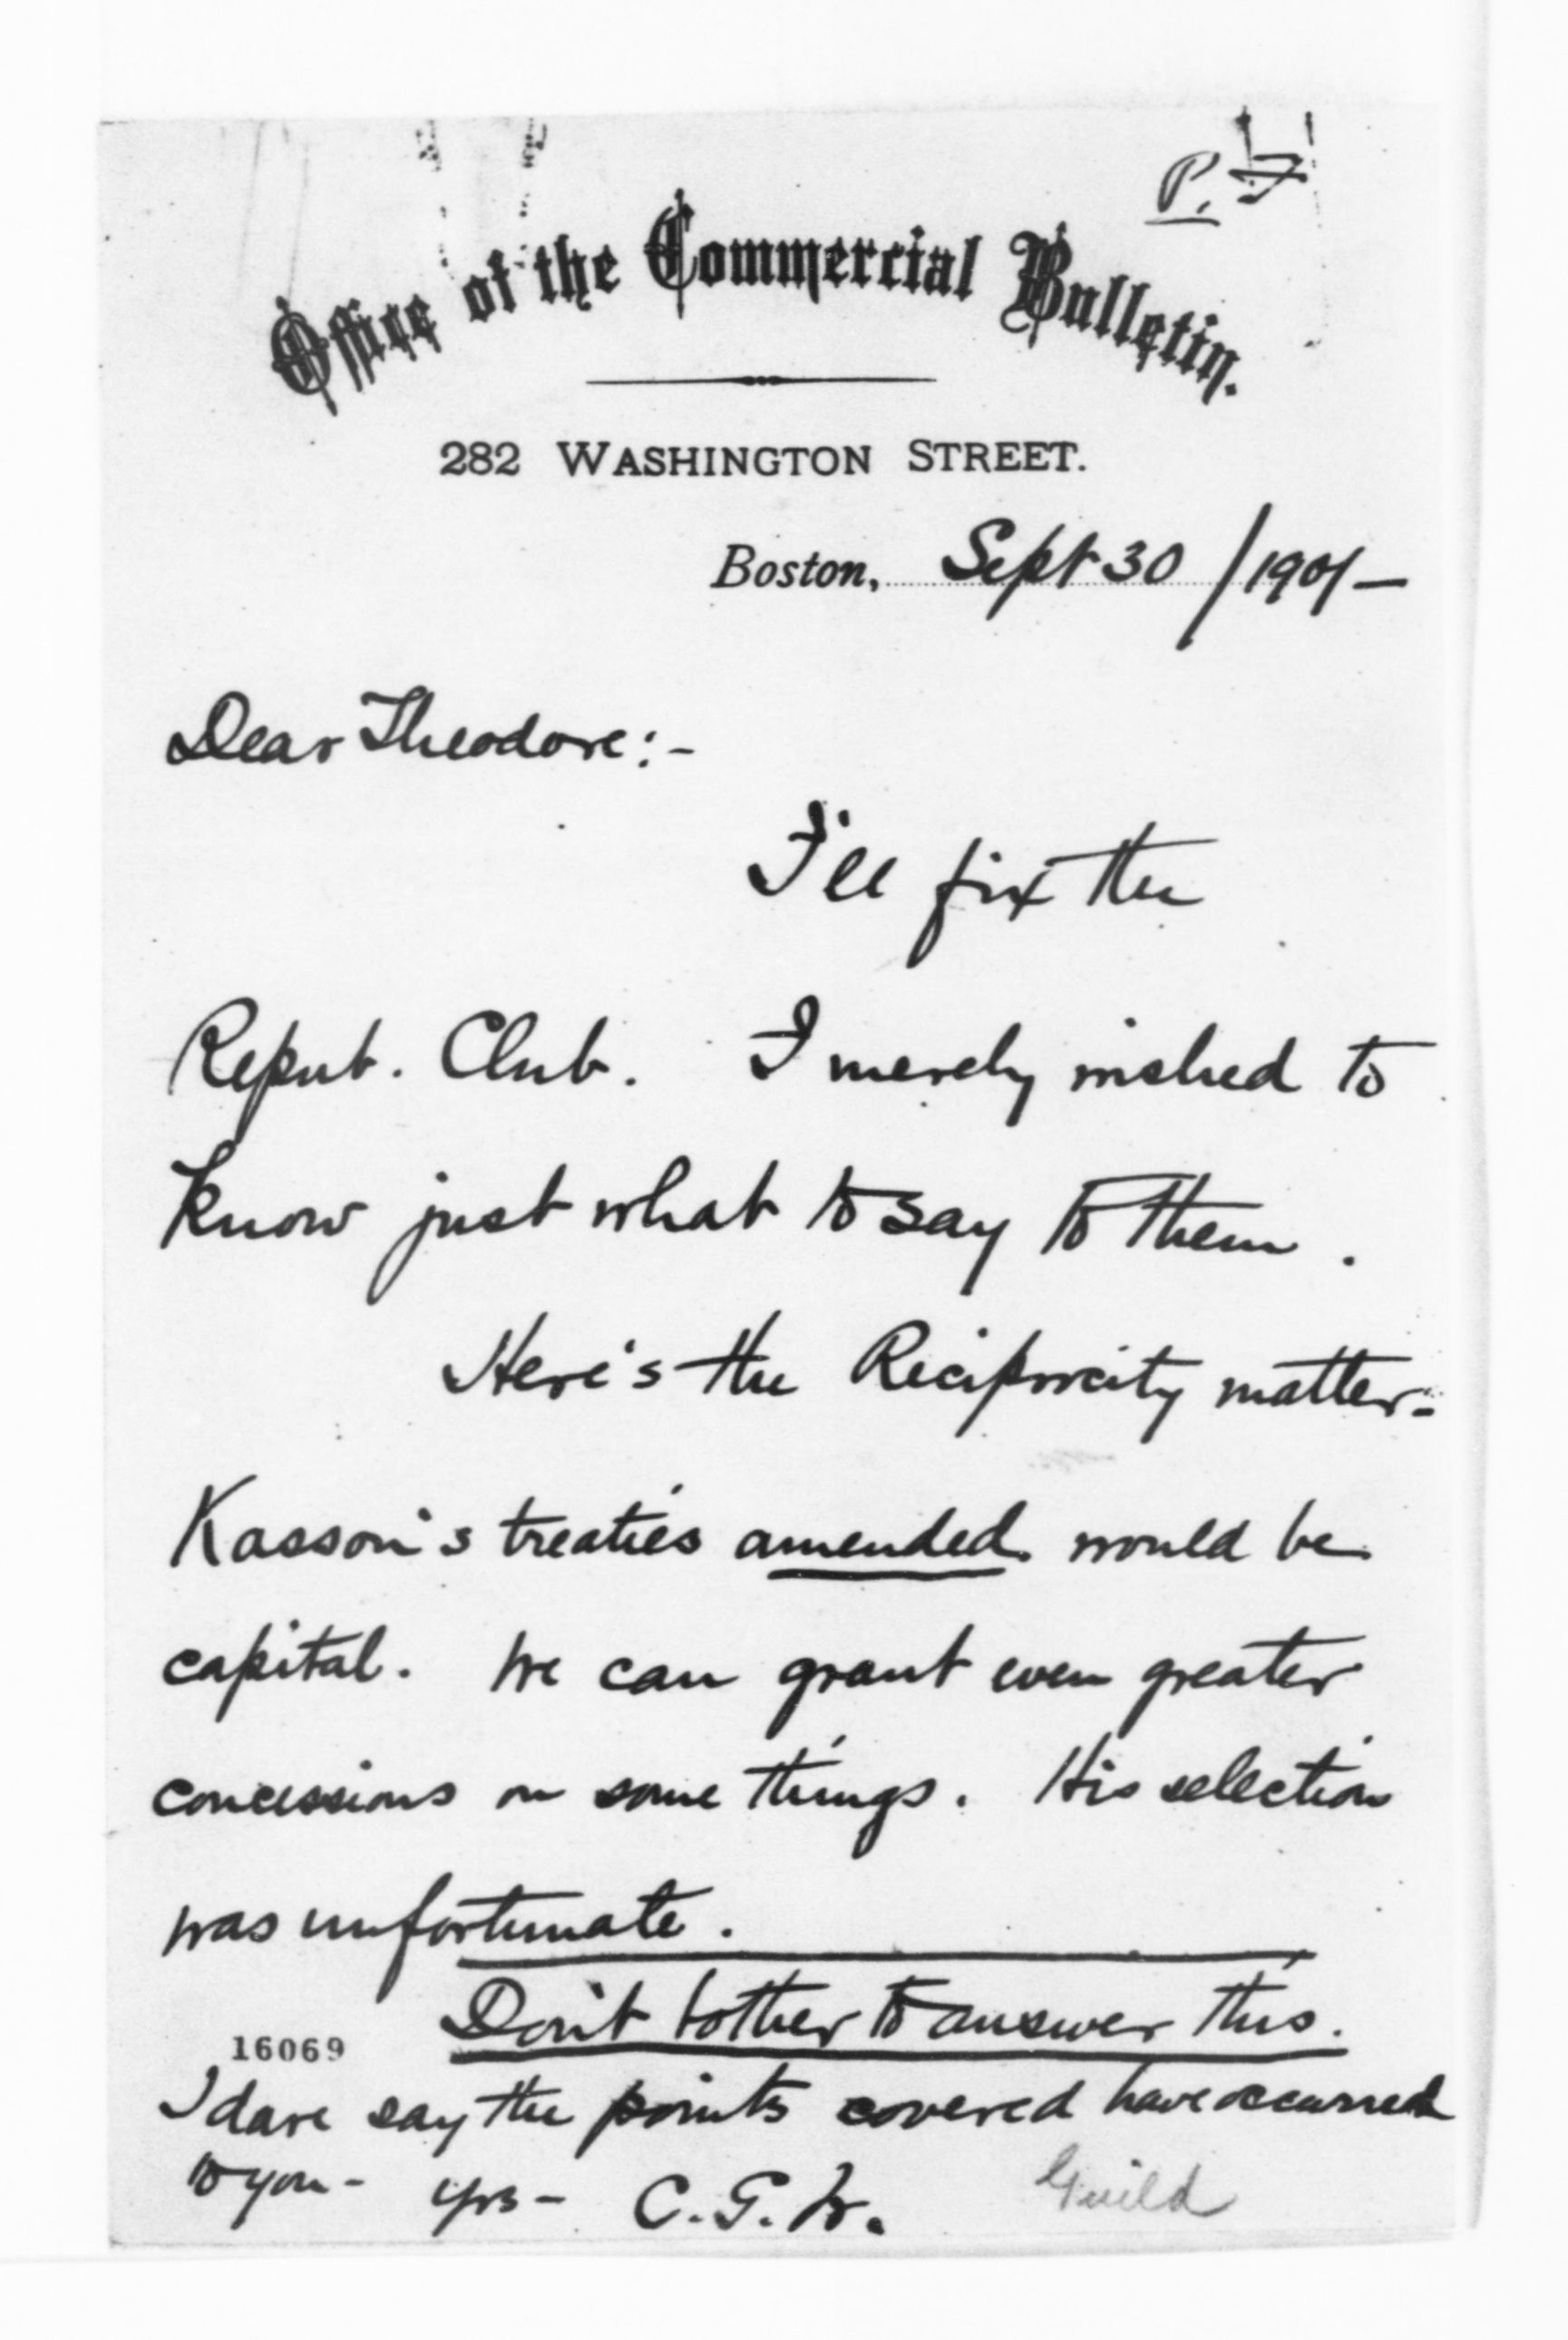 P. F
Office of the Commercial Bulletin.
282 WASHINGTON STREET.
Boston, Sept 30 / 1901 —
Dear Theodore:-
I'll fix the
Repub. Club. I merely wished to
know just what to say to them.
Here's the Reciprocity matter:-
Kasson's treaties amended would be
capital. We can grant even greater
concessions on some things. His selection
was unfortunate.
Don't bother to answer this.
16069
I dare say the points covered have occurred
to you - yrs - C. G. Jr.
Guild